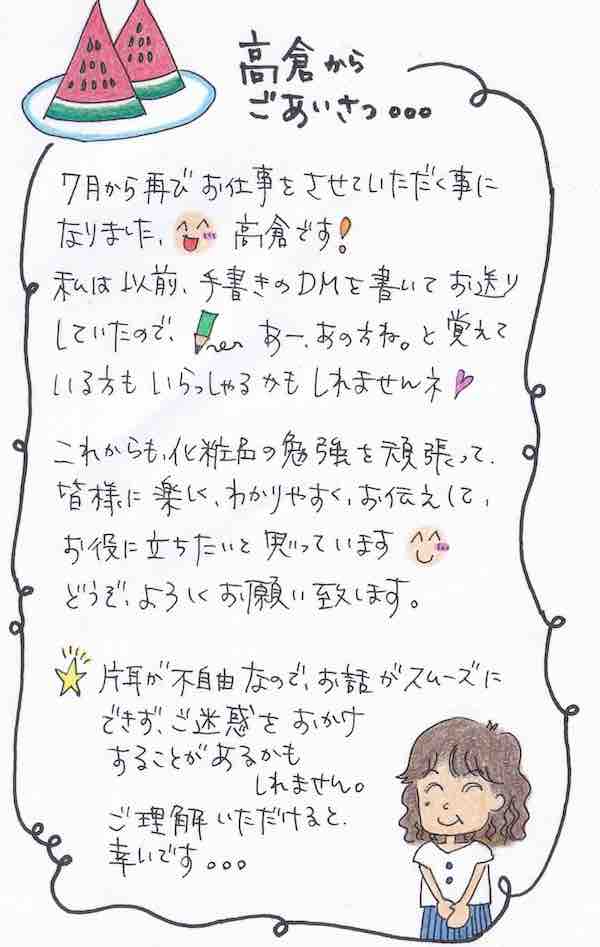 高倉から
ごあいさつ。。。
7月から再びお仕事をさせていただく事に
なりました、高倉です!
私は以前、手書きのDMを書いてお送り
していたので、あー、あの方ね。と覚えて
いる方もいらっしゃるかもしれませんネ
これからも、化粧品の勉強を頑張って、
皆様に楽しく、わかりやすく、お伝えして、
お役に立ちたいと思っています
どうぞ、よろしくお願い致します。
片耳が不自由なので、お話がスムーズに
できず、ご迷惑をおかけ
することがあるかも
しれません。
ご理解いただけると、
幸いです。。。